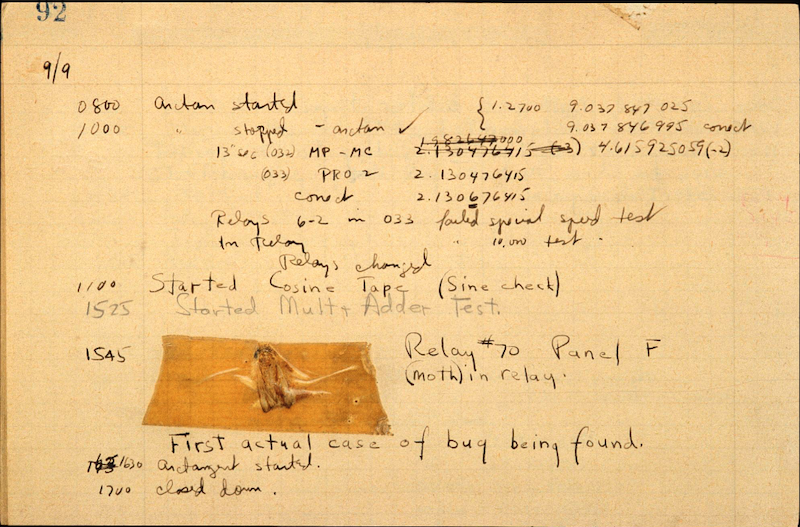 92
9/9
0800 Arctan started { 1.2700 9.037 847 025
1000 " stopped - arctan ✓ 9.037 846 995 correct
13" sec (032) MP - MC 2.130476415 4.615925059(-2)
(033) PRO 2 2.130476415
correct 2.130676415
Relays 6-2 in 033 failed special speed test
In Relay " 10,000 test .
Relays changed
1100 Started Cosine Tape (Sine check)
1525 Started Mult+ Adder Test.
1545 Relay #70 Panel F
(Moth) in relay.
First actual case of bug being found.
1630 arctangent started.
1700 closed down.